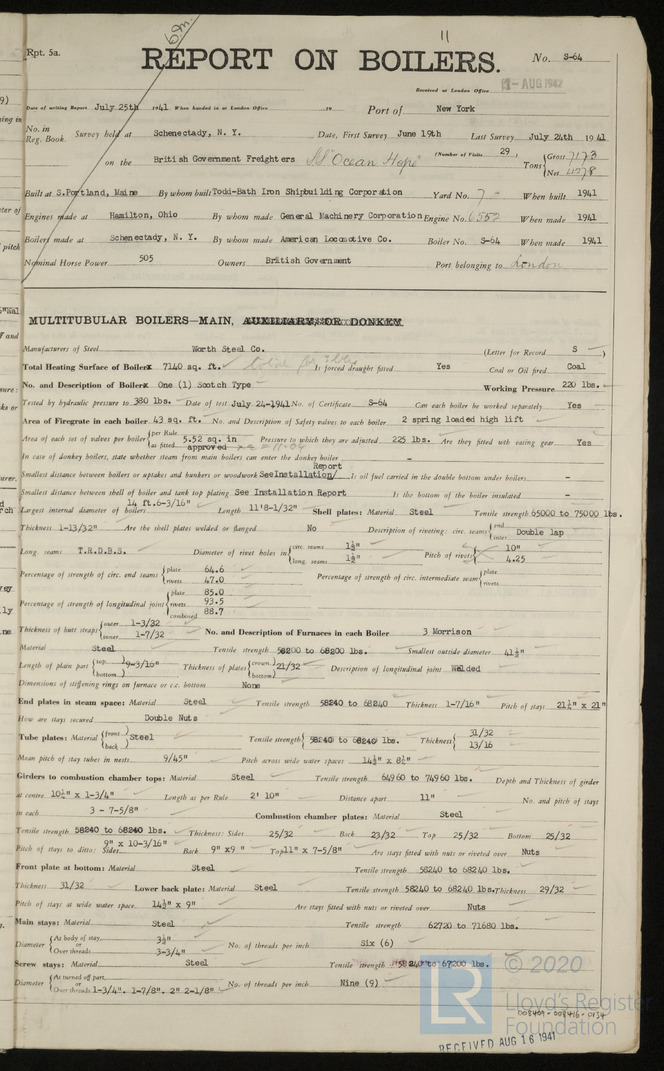 11
Rpt. 5a.
REPORT ON BOILERS.
No. S-64
Received at London Office
AUG 1942
Date of writing Report July 25th 1941 When handed in at London Office 19 Port of New York
No. in Reg. Book. Survey held at Schenectady, N. Y. Date, First Survey June 19th Last Survey July 24th 1941
on the British Government Freighters "Ocean Hope" (Number of Visits 29 ) Tons { Gross 7173 Net 4278
Built at S.Portland, Maine By whom built Todd-Bath Iron Shipbuilding Corporation Yard No. 7 When built 1941
Engines made at Hamilton, Ohio By whom made General Machinery Corporation Engine No. 6552 When made 1941
Boilers made at Schenectady, N. Y. By whom made American Locomotive Co. Boiler No. S-64 When made 1941
Nominal Horse Power 505 Owners British Government Port belonging to London
MULTITUBULAR BOILERS—MAIN, AUXILIARY, OR DONKEY
Manufacturers of Steel Worth Steel Co. (Letter for Record S )
Total Heating Surface of Boilers 7140 sq. ft. Is forced draught fitted Yes Coal or Oil fired Coal
No. and Description of Boilers One (1) Scotch Type Working Pressure 220 lbs.
Tested by hydraulic pressure to 380 lbs. Date of test July 24-1941 No. of Certificate S-64 Can each boiler be worked separately Yes
Area of Firegrate in each boiler 43 sq. ft. No. and Description of Safety valves to each boiler 2 spring loaded high lift
Area of each set of valves per boiler { per Rule 5.52 sq. in as fitted approved Pressure to which they are adjusted 225 lbs. Are they fitted with easing gear Yes
In case of donkey boilers, state whether steam from main boilers can enter the donkey boiler -
Smallest distance between boilers or uptakes and bunkers or woodwork See Installation Report Is oil fuel carried in the double bottom under boilers -
Smallest distance between shell of boiler and tank top plating See Installation Report Is the bottom of the boiler insulated -
Largest internal diameter of boilers 14 ft.6-3/16" Length 11'8-1/32" Shell plates: Material Steel Tensile strength 65000 to 75000 lbs.
Thickness 1-13/32" Are the shell plates welded or flanged No Description of riveting: circ. seams { end Double lap inter.
Long. seams T.R.D.B.S. Diameter of rivet holes in { circ. seams 1½" long. seams 1½" Pitch of rivets { 10" 4.25
Percentage of strength of circ. end seams { plate 64.6 rivets 47.0 Percentage of strength of circ. intermediate seam { plate rivets
Percentage of strength of longitudinal joint { plate 85.0 rivets 93.5 combined 88.7
Thickness of butt straps { outer 1-3/32 inner 1-7/32 No. and Description of Furnaces in each Boiler 3 Morrison
Material Steel Tensile strength 58200 to 68200 lbs. Smallest outside diameter 41½"
Length of plain part { top bottom } 9-3/16" Thickness of plates { crown bottom } 21/32 Description of longitudinal joint Welded
Dimensions of stiffening rings on furnace or c.c. bottom None
End plates in steam space: Material Steel Tensile strength 58240 to 68240 Thickness 1-7/16" Pitch of stays 21¼" x 21"
How are stays secured Double Nuts
Tube plates: Material { front back } Steel Tensile strength { 58240 to 68240 lbs. Thickness { 31/32 13/16
Mean pitch of stay tubes in nests 9/45" Pitch across wide water spaces 14½" x 8¼"
Girders to combustion chamber tops: Material Steel Tensile strength 64960 to 74960 lbs. Depth and Thickness of girder
at centre 10½" x 1-3/4" Length as per Rule 2' 10" Distance apart 11" No. and pitch of stays
in each 3 - 7-5/8" Combustion chamber plates: Material Steel
Tensile strength 58240 to 68240 lbs. Thickness: Sides 25/32 Back 23/32 Top 25/32 Bottom 25/32
Pitch of stays to ditto: Sides 9" x 10-3/16" Back 9" x9 " Top 11" x 7-5/8" Are stays fitted with nuts or riveted over Nuts
Front plate at bottom: Material Steel Tensile strength 58240 to 68240 lbs.
Thickness 31/32 Lower back plate: Material Steel Tensile strength 58240 to 68240 lbs. Thickness 29/32
Pitch of stays at wide water space 14½" x 9" Are stays fitted with nuts or riveted over Nuts
Main stays: Material Steel Tensile strength 62720 to 71680 lbs.
Diameter { At body of stay, 3½" or Over threads 3-3/4" No. of threads per inch Six (6)
Screw stays: Material Steel Tensile strength 58240 to 67200 lbs.
Diameter { At turned off part, or Over threads 1-3/4". 1-7/8". 2" 2-1/8" No. of threads per inch Nine (9)
© 2020
LR
Lloyd's Register
Foundation
008409-008416-0134
RECEIVED AUG 16 1941